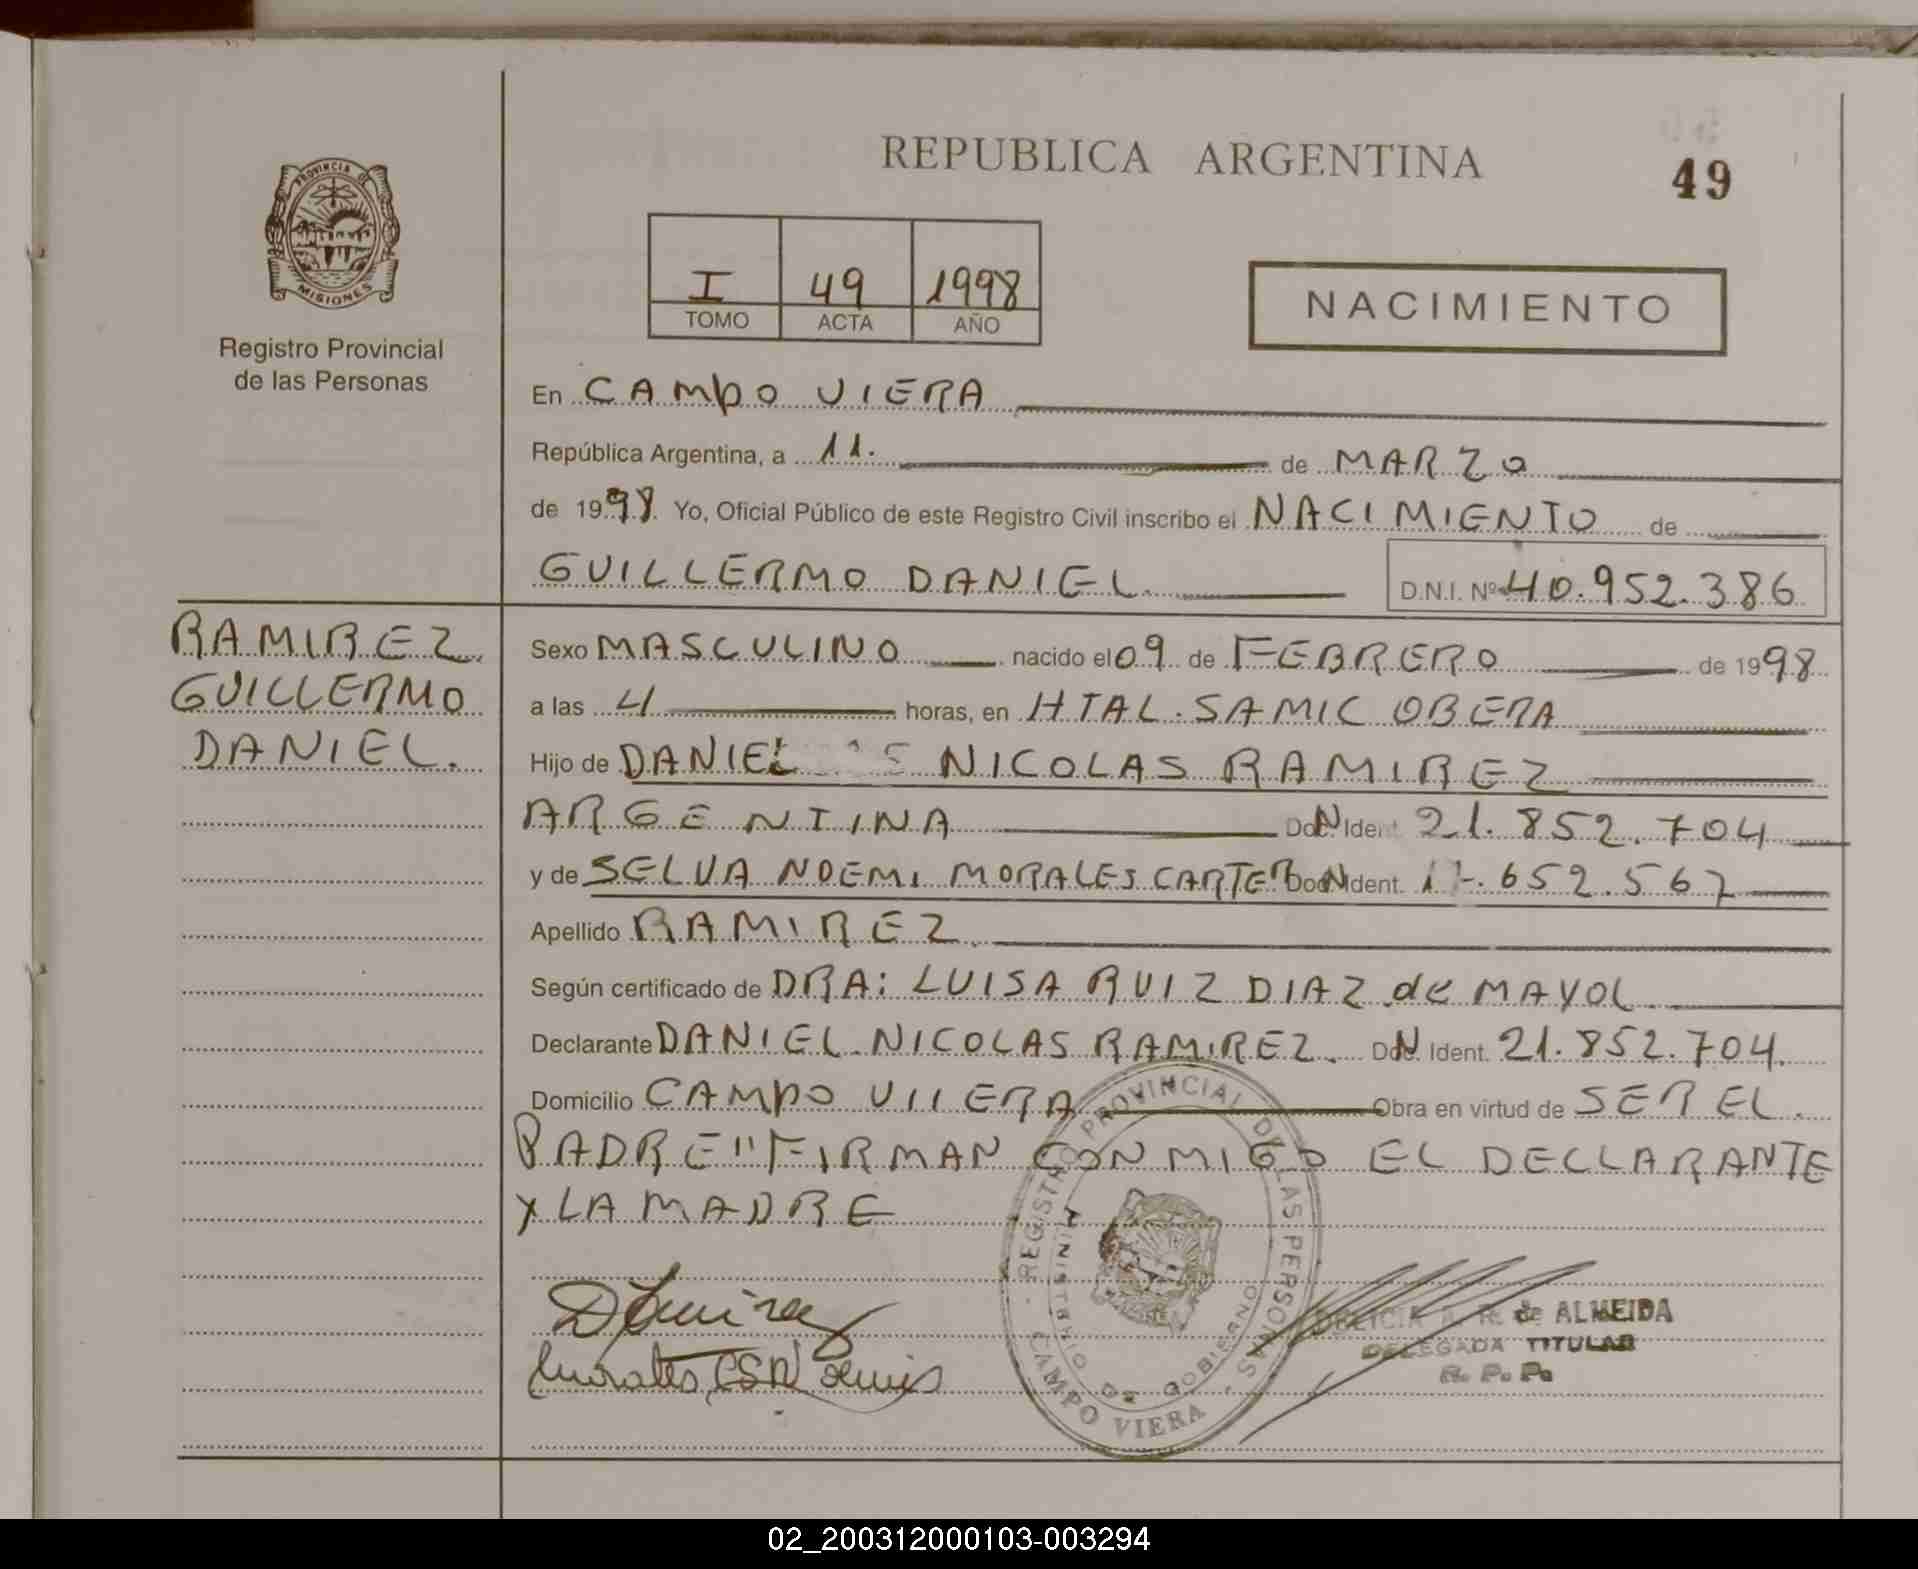 REPUBLICA ARGENTINA
49
PROVINCIA DE
MISIONES
Registro Provincial
de las Personas
I 49 1998
TOMO ACTA AÑO
NACIMIENTO
En CAMPO VIERA
República Argentina, a 11. de MARZO
de 1998. Yo, Oficial Público de este Registro Civil inscribo el NACIMIENTO de
GUILLERMO DANIEL. D.N.I. Nº 40.952.386
RAMIREZ
GUILLERMO
DANIEL.
Sexo MASCULINO nacido el 09 de FEBRERO de 1998
a las 4 horas, en HTAL. SAMIC OBERA
Hijo de DANIEL NICOLAS RAMIREZ
ARGENTINA Ident. 21.852.704
y de SELVA NOEMI MORALES CARTER Ident. .652.567
Apellido RAMIREZ
Según certificado de DRA: LUISA RUIZ DIAZ de MAYOL
Declarante DANIEL NICOLAS RAMIREZ. Ident. 21.852.704.
Domicilio CAMPO VIIERA Obra en virtud de SER EL
PADRE" FIRMAN CONMIGO EL DECLARANTE
Y LA MADRE
REGISTRO PROVINCIAL DE LAS PERSONAS
MINISTERIO DE GOBIERNO
CAMPO VIERA
DELICIA A. R. de ALMEIDA
DELEGADA TITULAR
R. P. P.
02_200312000103-003294